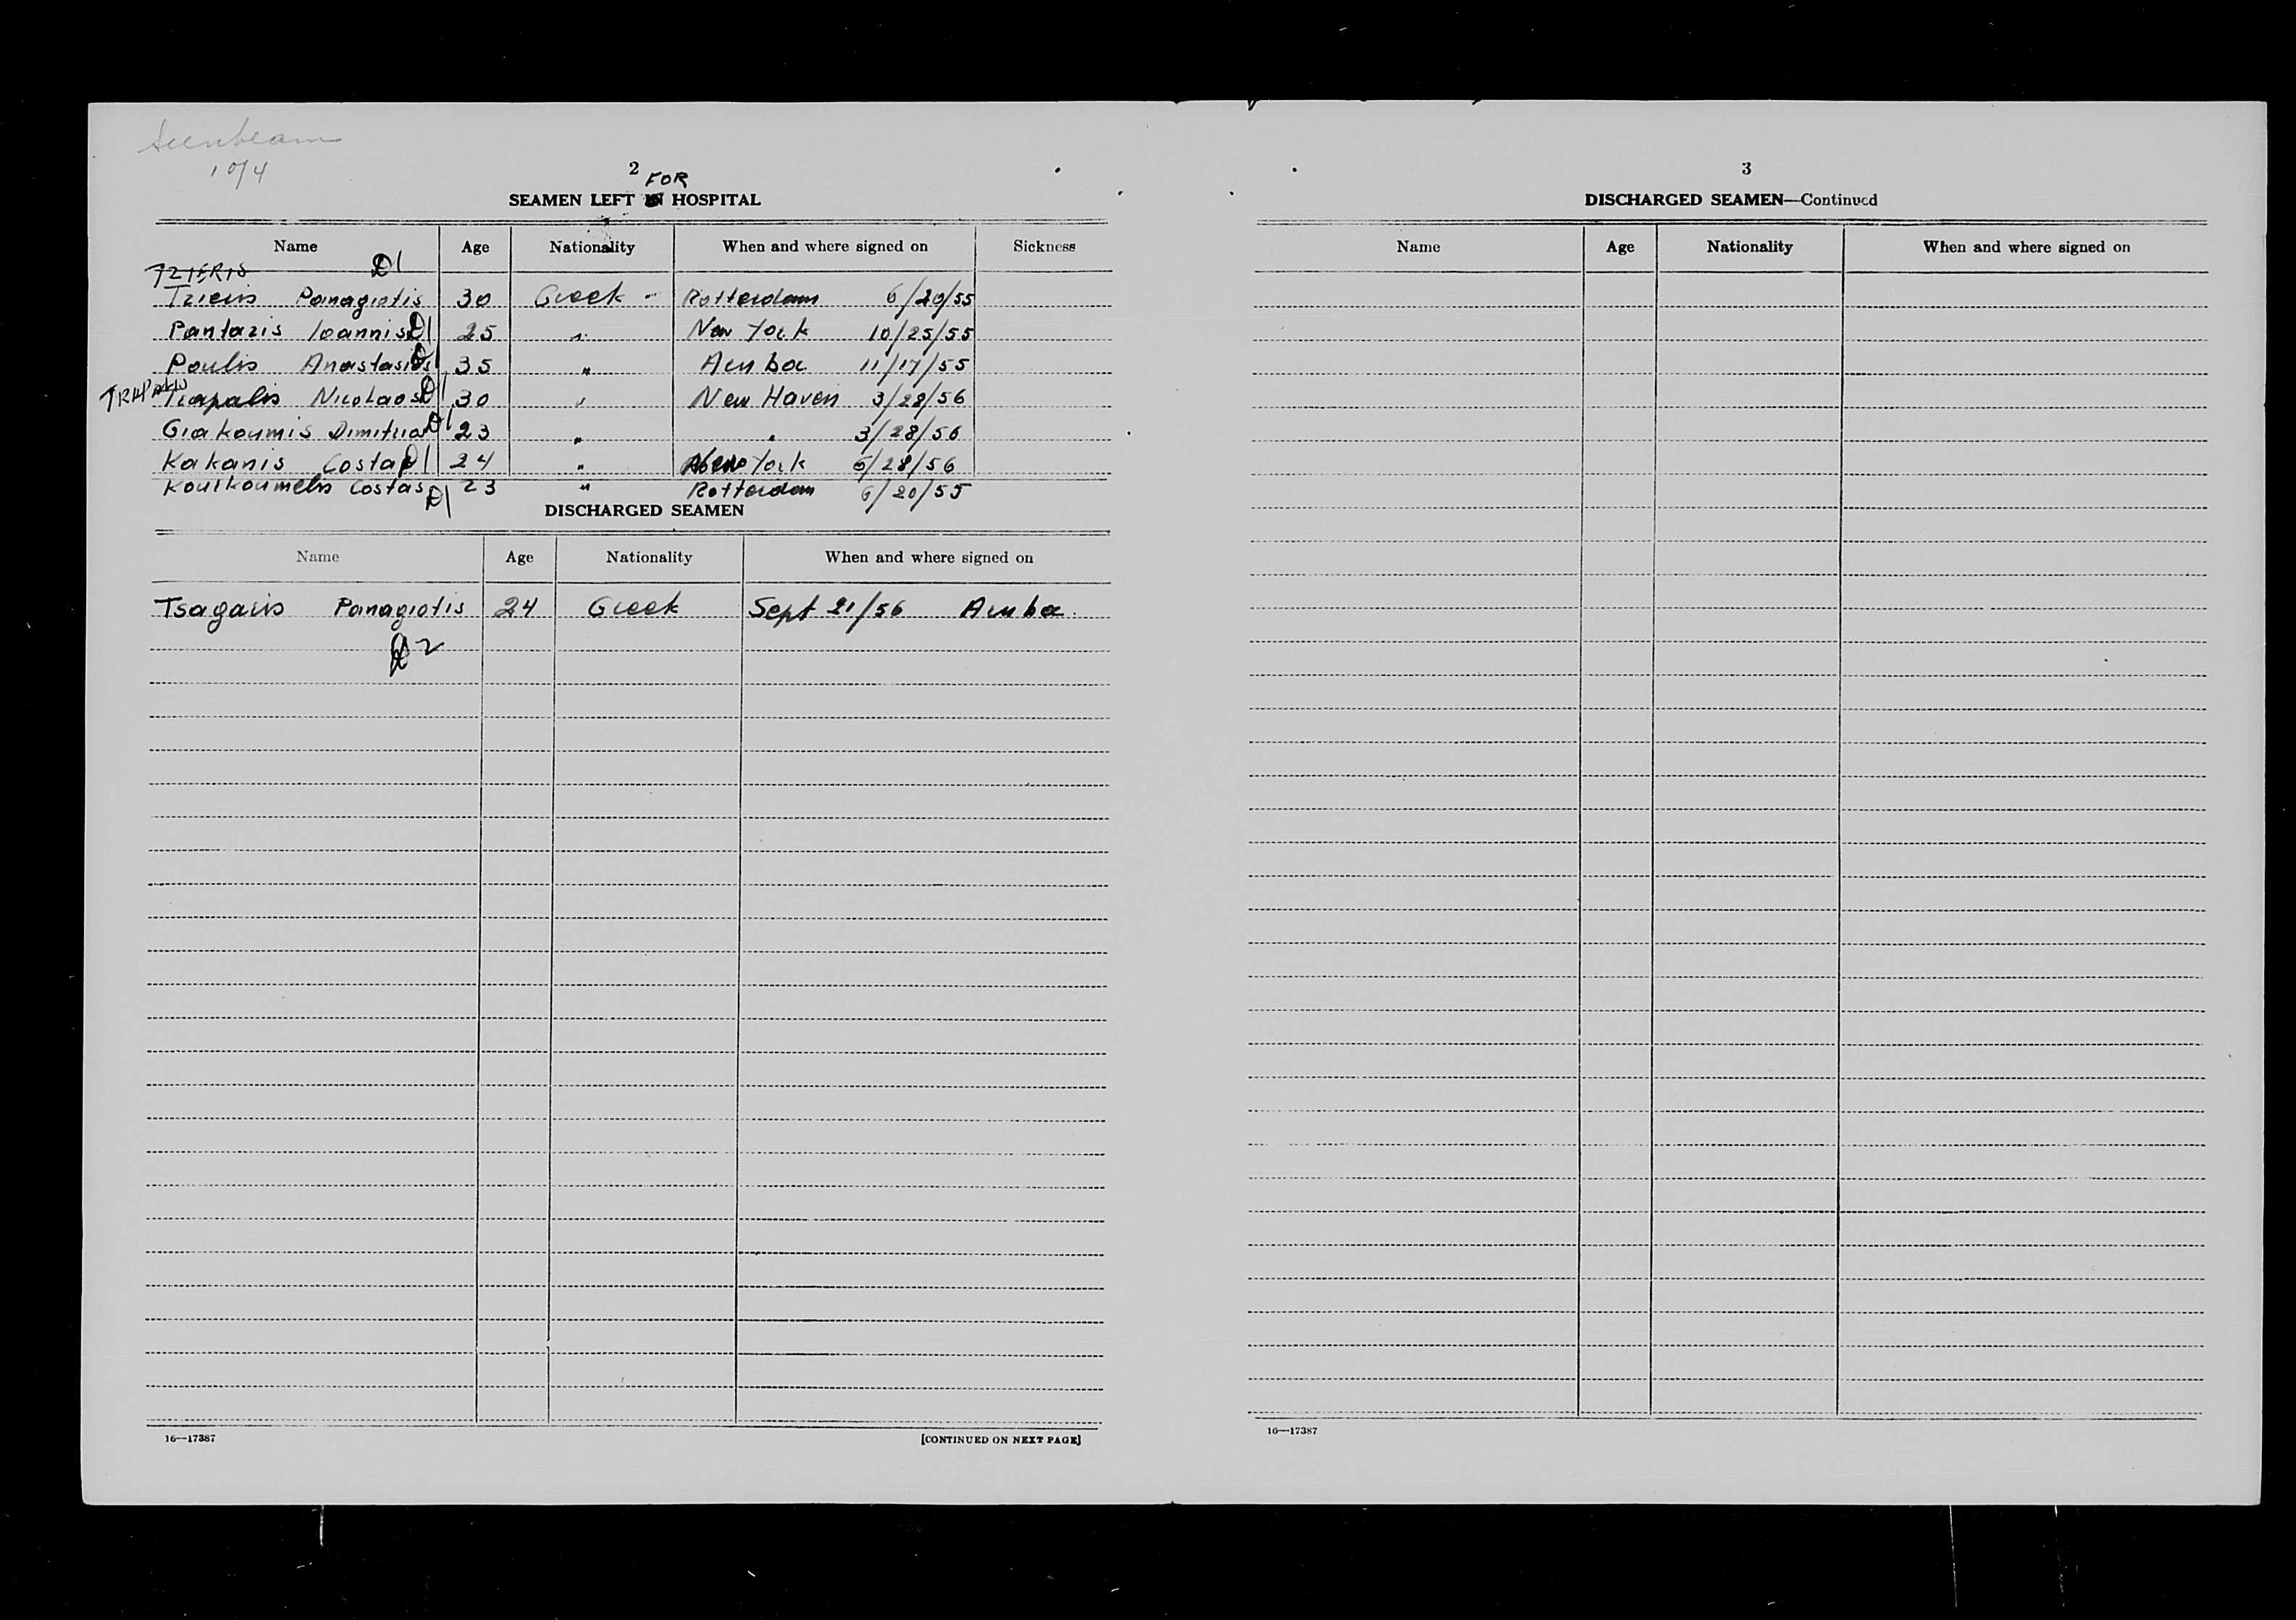 10/4
2
FOR
SEAMEN LEFT IN HOSPITAL
Name Age Nationality When and where signed on Sickness
TZIERIS D1
Tzieris Panagiotis 30 Greek - Rotterdam 6/20/55
Pantazis Ioannis D1 25 " New York 10/25/55
Poulis Anastasios D1 35 " Aruba 11/17/55
Trapalis Nicolaos D1 30 " New Haven 3/28/56
Giakoumis Dimitrio D1 23 " " 3/28/56
Kakanis Costas D1 24 " New York 6/28/56
Kourkoumelis Costas D1 23 " Rotterdam 6/20/55
DISCHARGED SEAMEN
Name Age Nationality When and where signed on
Tsagaris Panagiotis 24 Greek Sept 21/56 Aruba.
D2
16—17387
[CONTINUED ON NEXT PAGE]
3
DISCHARGED SEAMEN—Continued
Name Age Nationality When and where signed on
16—17387